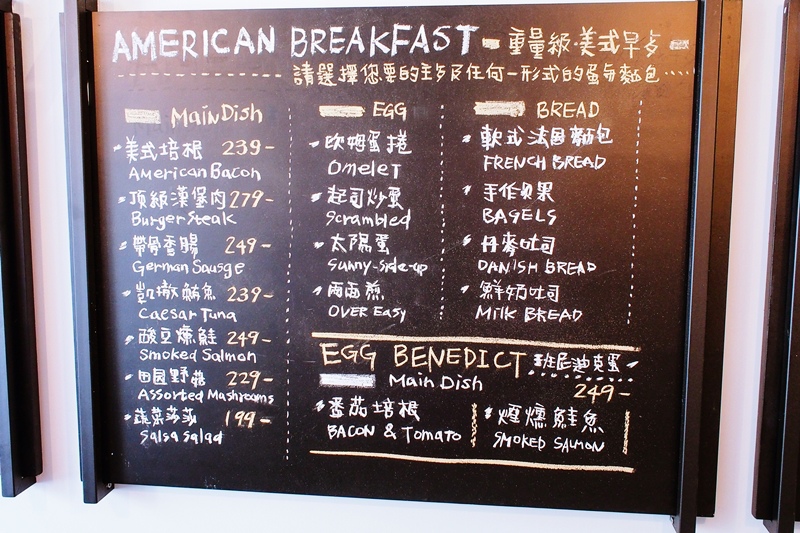 AMERICAN BREAKFAST - 重量級·美式早
請選擇您要的主多及任何一形式的蛋与麵包.....
Main Dish
美式培根 239-
American Bacon
頂級漢堡肉 279-
Burger Steak
帶骨香腸 249-
German Sausge
凱撒鮪魚 239-
Caesar Tuna
酸豆燻鮭 249-
Smoked Salmon
田園野菇 229-
Assorted Mashrooms
蔬菜莎莎 199-
Salsa Salad
EGG
歐姆蛋捲
OmeleT
起司炒蛋
Scrambled
太陽蛋
Sunny-side-up
兩面煎
OVER Easy
BREAD
軟式法國麵包
FRENCH BREAD
手作貝果
BAGELS
丹麥吐司
DANISH BREAD
鮮奶吐司
Milk BREAD
EGG BENEDICT 班尼迪克蛋
Main Dish 249-
番茄培根
BACON & Tomato
煙燻鮭魚
SMOKED SALMON